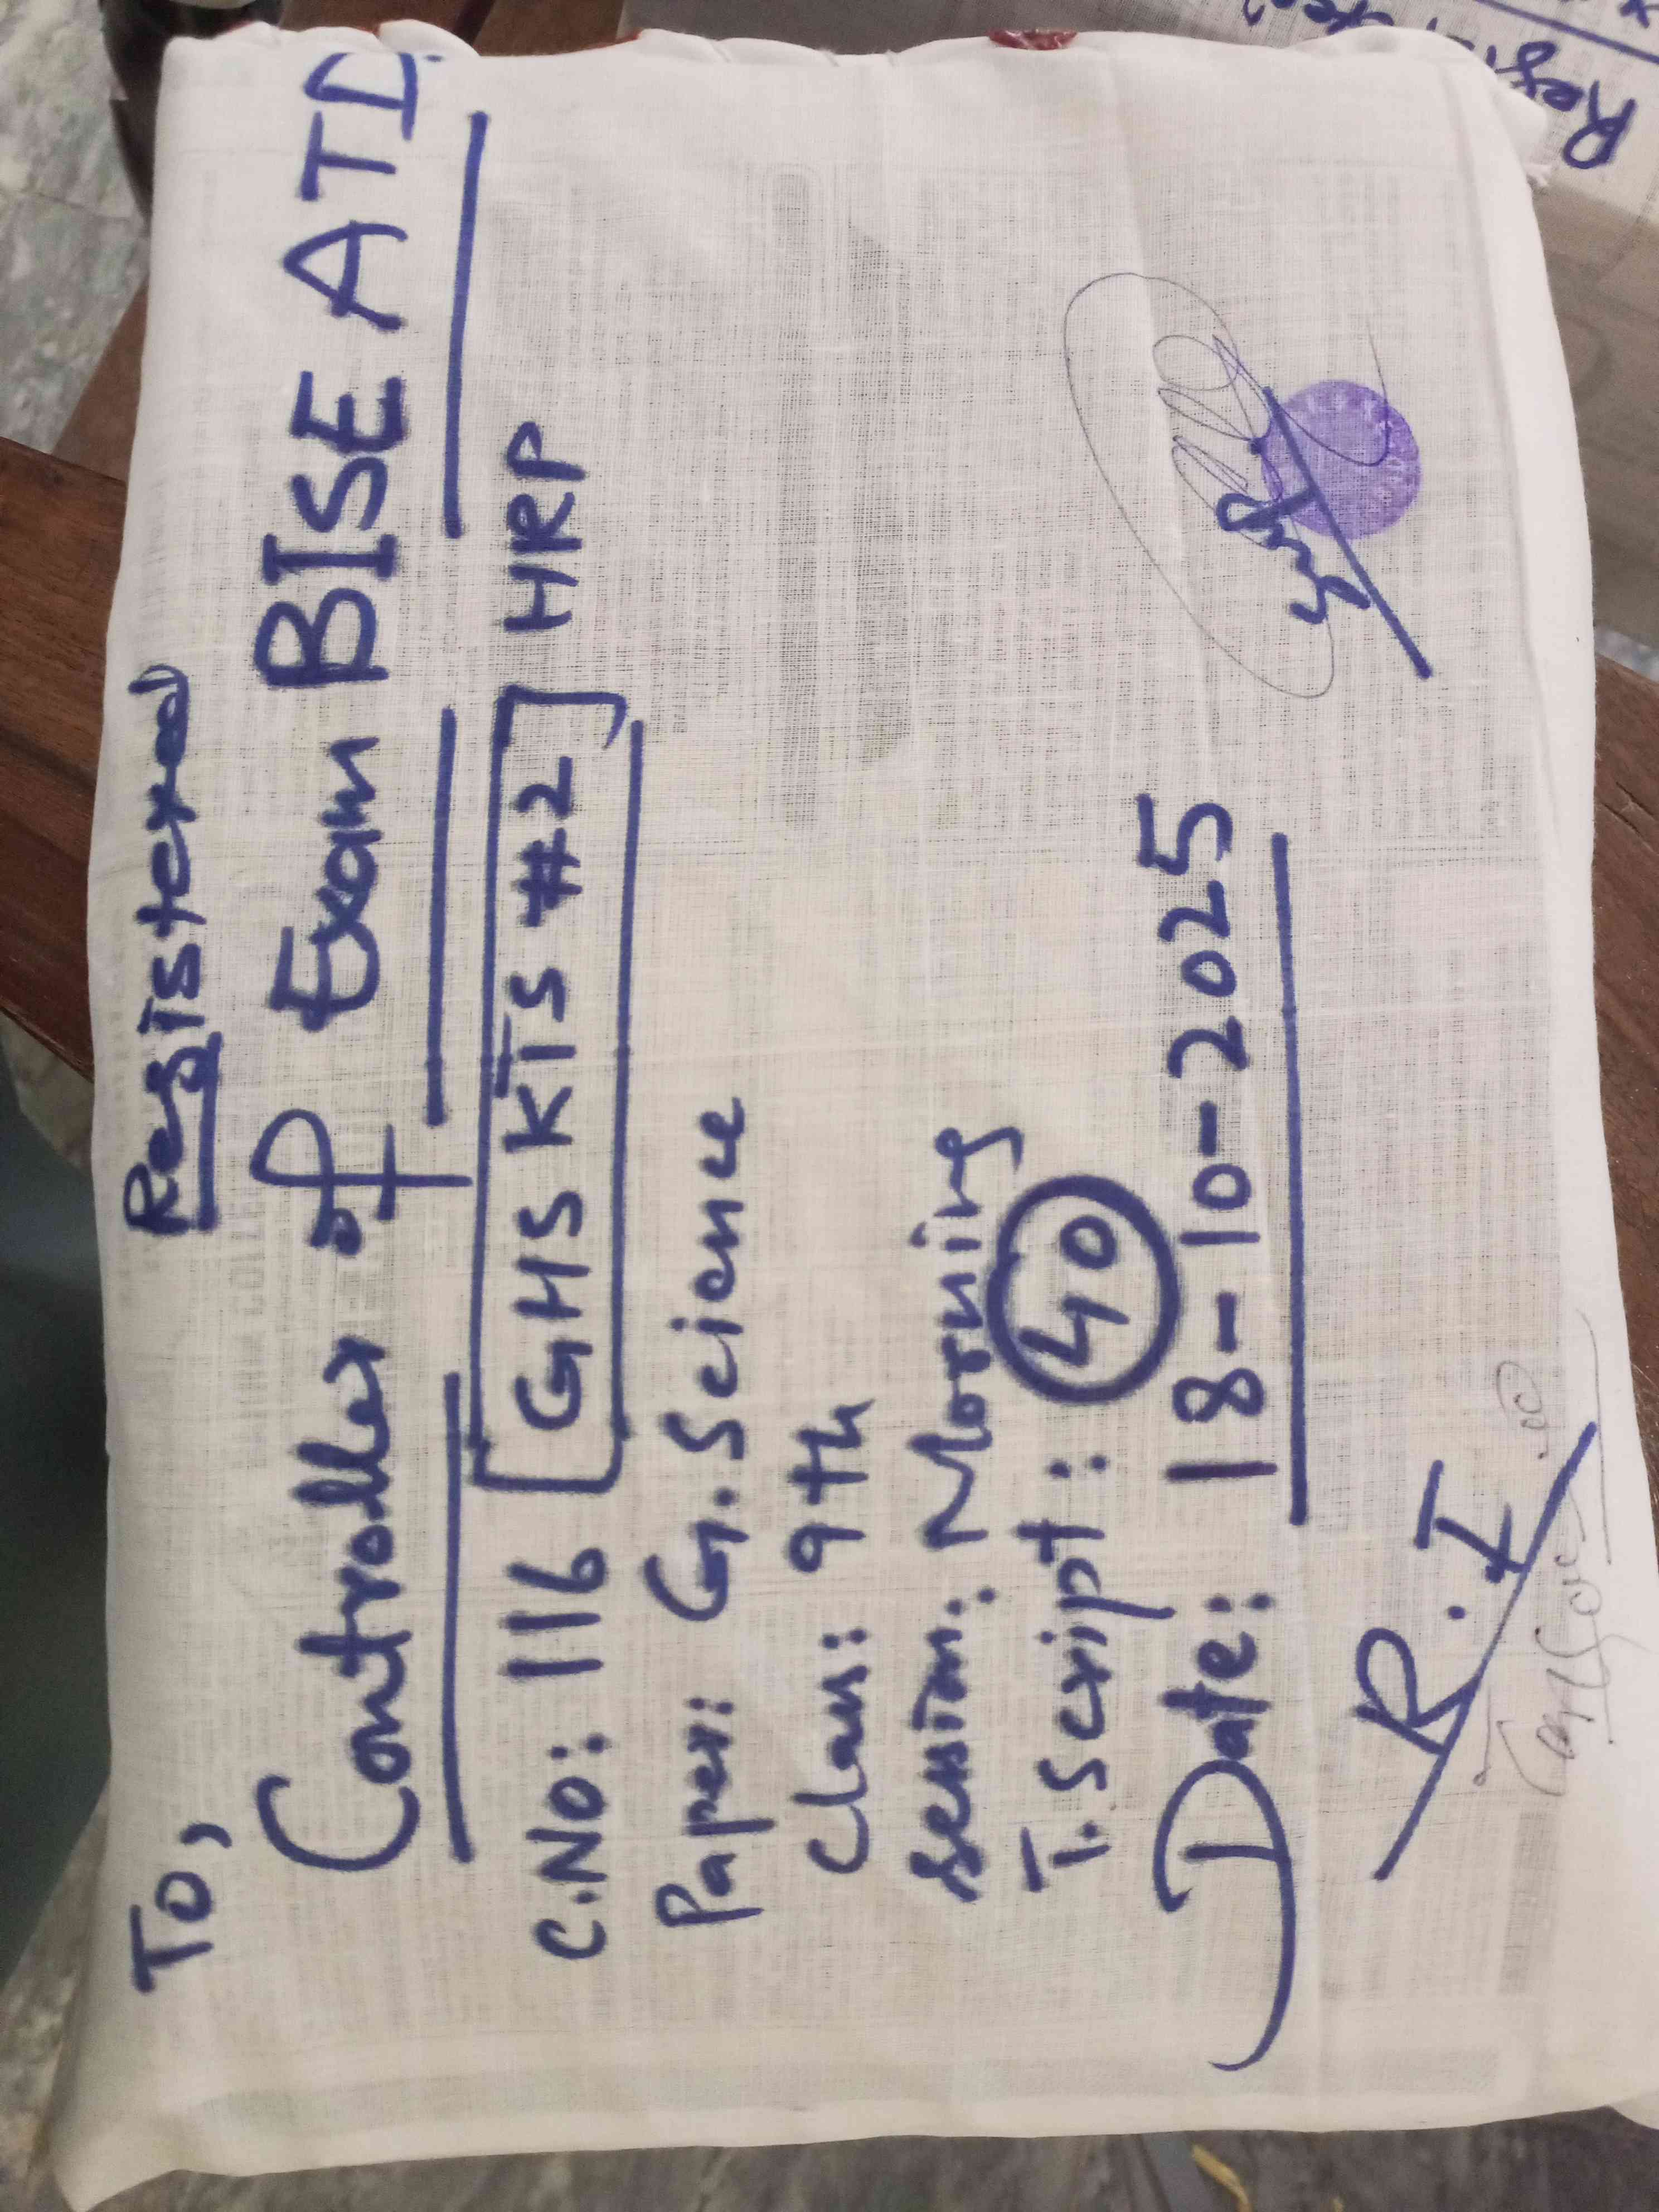 Registered
To,
Controller of Exam BISE ATD.
C.No: 116 [GHS KTS #2] HRP
Paper: G.Science
Class: 9th
Session: Morning
T.Script: 40
Date: 18-10-2025
R.I